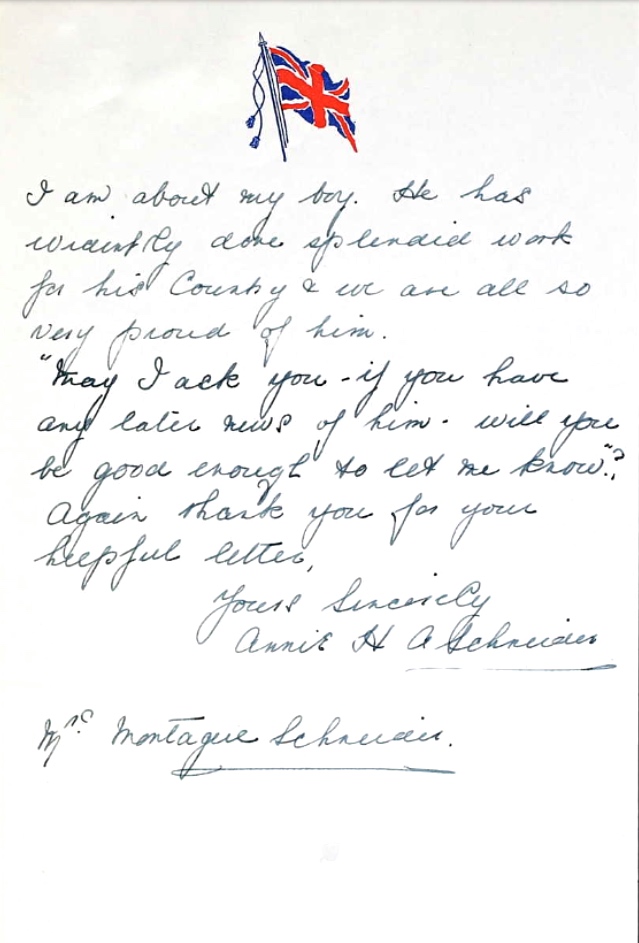 I am about my boy. He has
evidently done splendid work
for his Country & we are all so
very proud of him.
"May I ask you - if you have
any later news of him - will you
be good enough to let me know."?
Again thank you for your
helpful letter,
Yours Sincerely
Annie H A Schneider
Mrs. Montague Schneider.